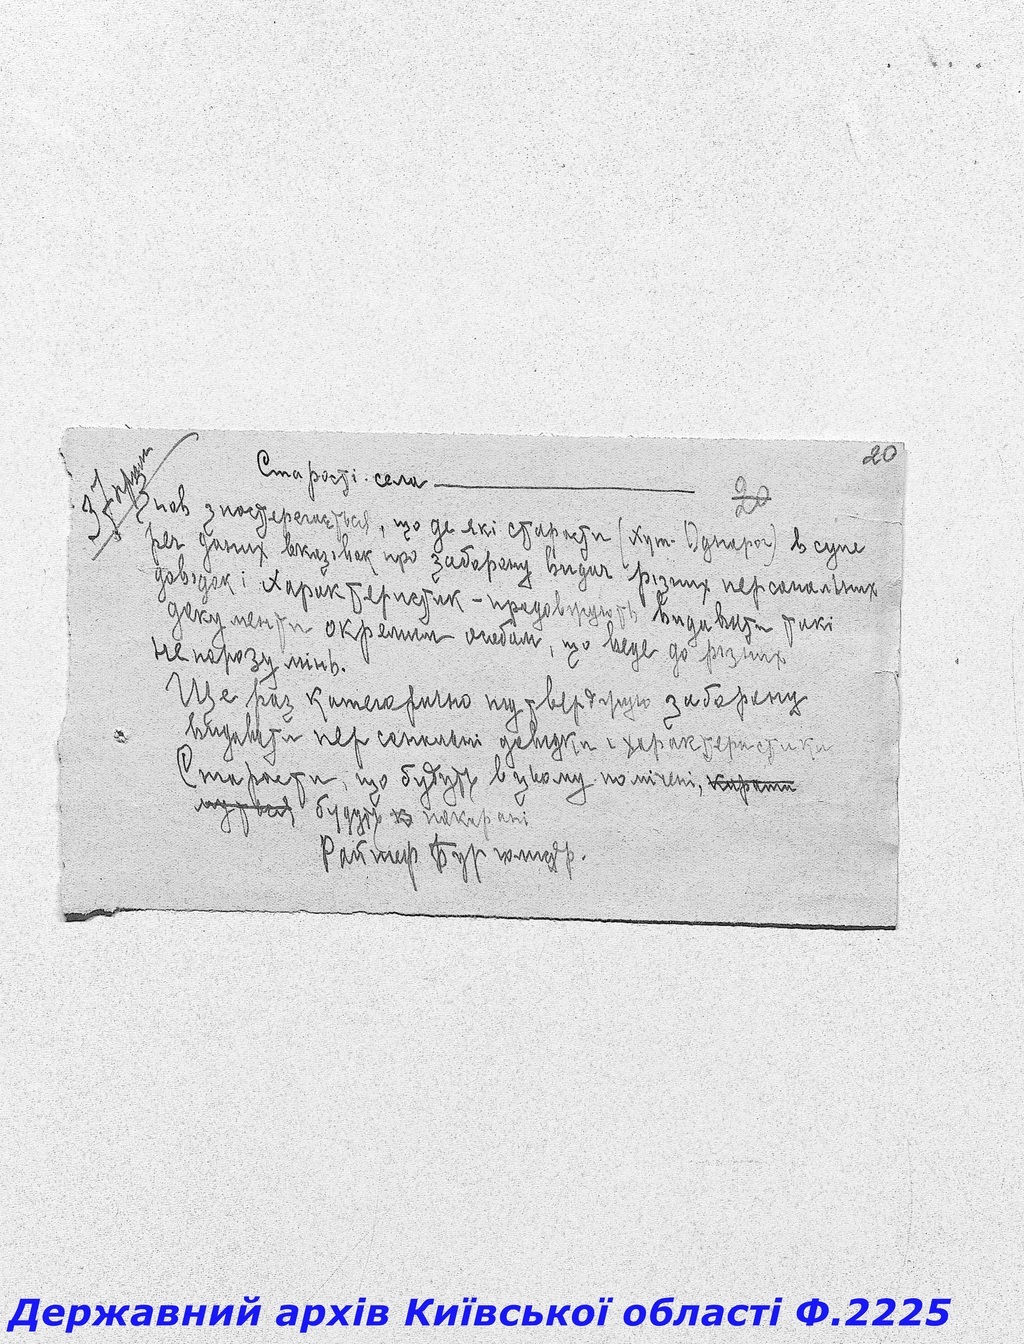 20
Старості села
20
Знов з постерегається, що де які старости (Хут. ) в супе
реч даних вказівок про заборону видач різних персональних
довідок і характеристик – продовжують видавати такі
документи окремим особам, що веде до різних
непорозумінь.
Ще раз категорично підтверджую заборону
видавати персональні довідки і характеристики
Старости, що будуть в цьому помічені, карати
будуть покарані
Райшеф Бургомістр.
Державний архів Київської області Ф.2225